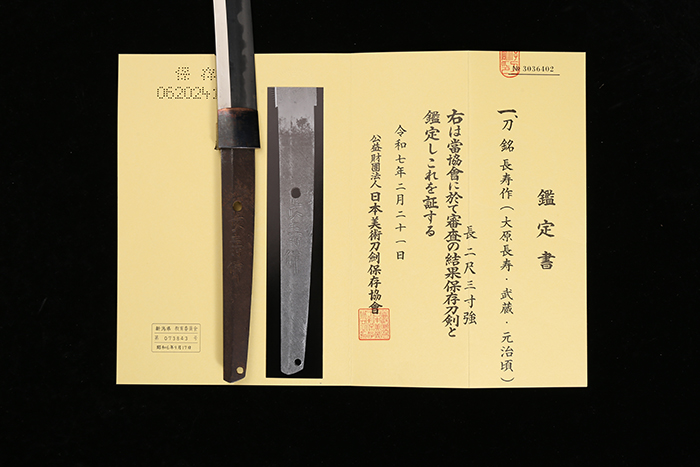 鑑定書
№ 3036402
一、刀 銘 長寿作(大原長寿・武蔵・元治頃)
長 二尺三寸強
右は當協會に於て審査の結果保存刀剣と
鑑定しこれを証する
令和七年二月二十一日
公益財團法人 日本美術刀劍保存協會
保存
0620241
新潟県 教育委員会
第 073863 号